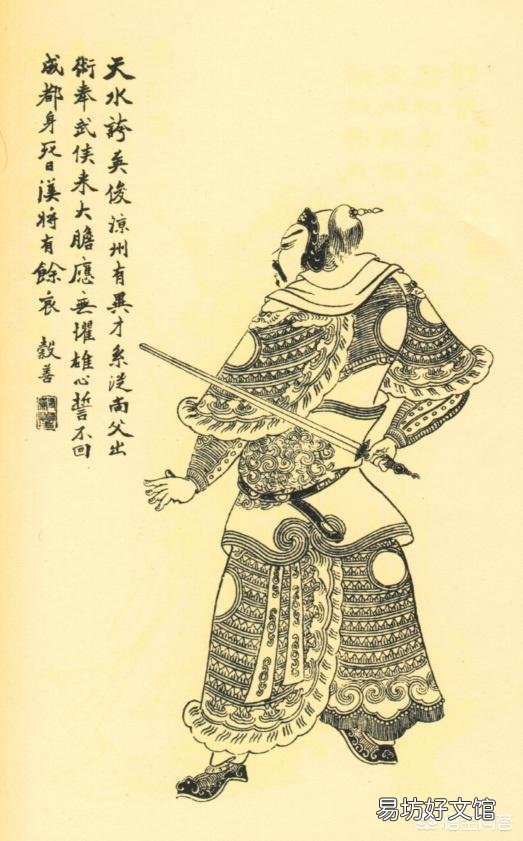 天水誇英俊涼州有異才系從尚父出
術奉武侯來大膽應無懼雄心誓不回
成都身死日漢將有餘哀 穀善
易坊好文馆